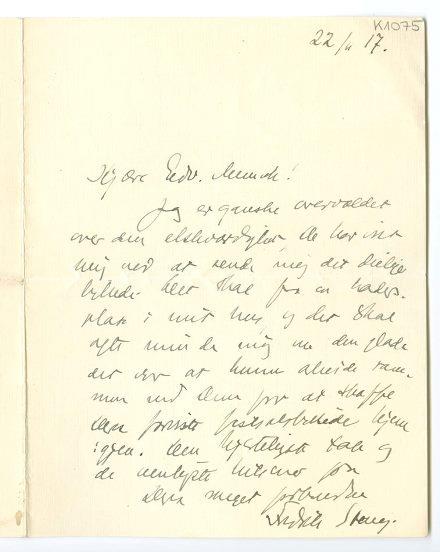 K1075
22/11 17.
Kjære Edv. Munch!
Jeg er ganske overvældet
over den elskværdighet De har vist
mig ved at sende mig det deilige
billede. Det skal faa en hæders-
plass i mit hus og det skal
ofte minde mig om den glæde
det var at kunne arbeide sam-
men med Dem for at skaffe
Dem hjem
igjen. Den hjerteligste tak og
de venligste hilsener fra
Deres meget forbundne
Fredrik Stang.